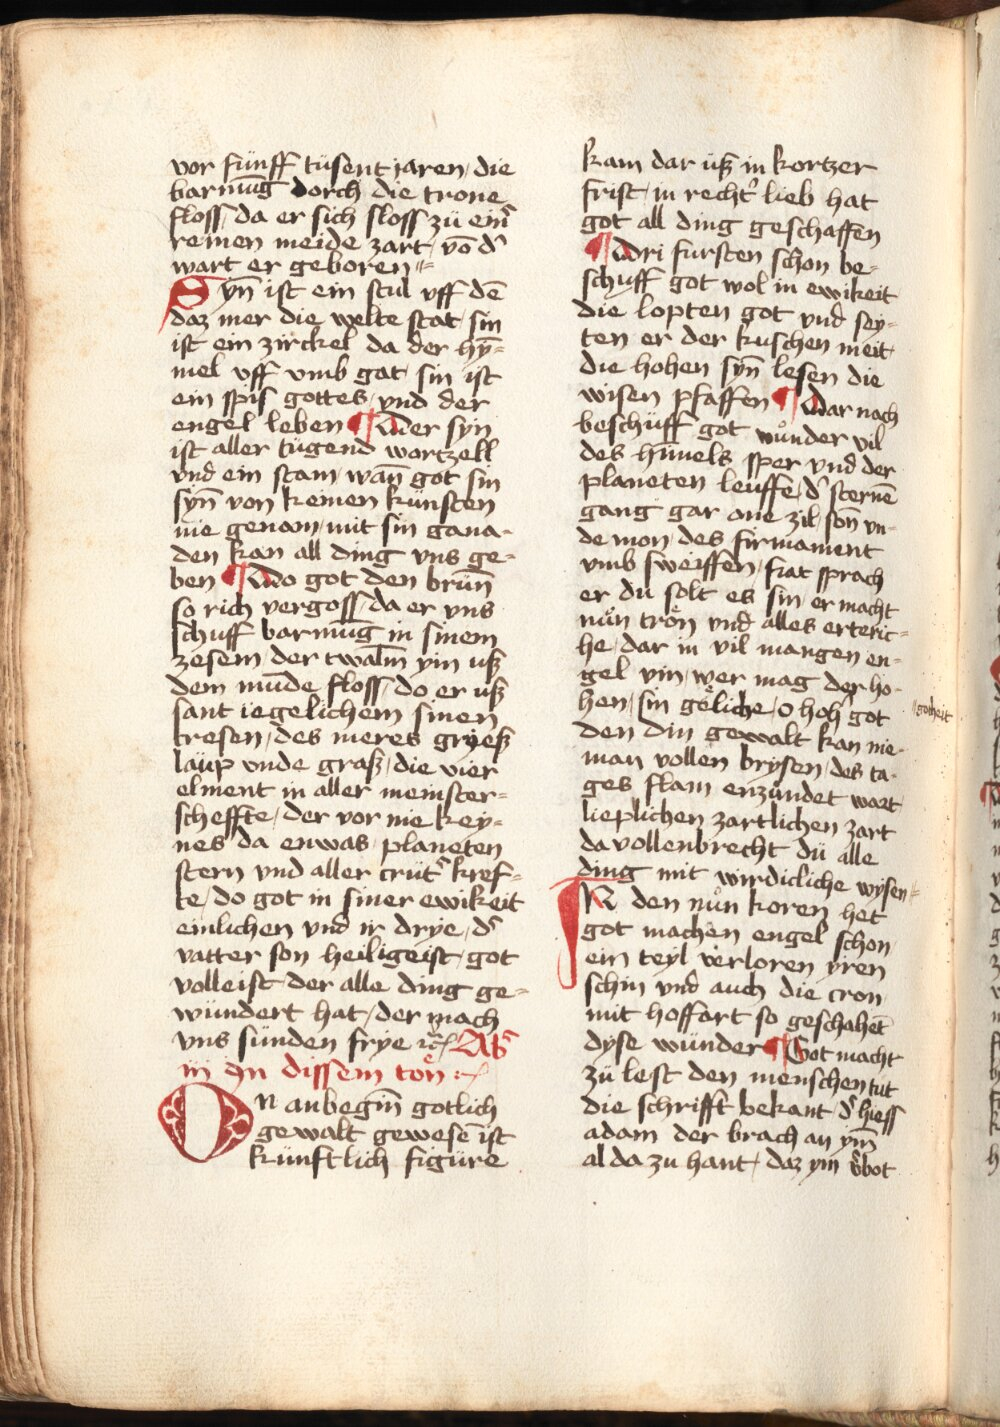 vor fünff tüsent jaren / die
barmūg dorch die trone
floss / da er sich sloss zü eim̄
reinen meide zart / vō dˀ
wart er geboren
Syn̄ ist ein stul vff dē
daz mer die welte stat / sin
ist ein zirckel da der hȳ-
mel vff vmb gat / sin ist
ein spis gottes / vnd der
engel leben ¶ Der syn
ist aller tugend wortzell
vnd ein stam / wān got sin
syn̄ von keinen künsten
nie genam / mit sin gana-
den kan all ding vns ge-
ben ¶ Do got den brun̄
so rich vergoss / da er vns
schuff barmūg in sinem
zesem / der twalm̄ yin uß
dem mūde floss / do er uß
sant iegelichem sinen
tresen / des meres grieß
laup vnde graß / die vier
elment in aller meinster-
scheffte / der vor nie key-
nes da enwas / planeten
stern vnd aller crütˀ kref-
te / do got in siner ewikeit
einlichen vnd in drye / dˀ
vatter son heiligeist / got
volleist / der alle ding ge-
wündert hat / der mach
vns sünden frye ⁊c̄ Abˀ
iij jn dissem ton
On anbegin̄ gotlich
gewalt gewesē ist
künftlich figüre
kam dar üß in kortzer
frist / in rechtˀ lieb hat
got all ding geschaffen
¶ Dri fursten schon be-
schuff got wol in ewikeit
die lopten got vnd sey-
ten er der kuschen meit
die hohen syn̄ lesen die
wisen pfaffen ¶ Dar nach
beschüff got wůnder vil
des himels sper vnd der
planeten leuffe / dˀ sternē
gang gar ane zil / son̄ vn-
de mon / des firmament
vmb sweiffen / fiat sprach
er du solt es sin / er macht
nůn tron vnd alles erteric-
he / dar in vil mangen en-
gel vin / wer mag der ho-
hen / sin geliche / o hoh got
gotheit
den din gewalt kan nie-
man vollen brysen / des ta-
ges flam enzündet wart
lieplichen zartlichen zart
da vollenbrecht dü alle
ding mit wirdicliche wysen
IN den nůn koren het
got machen engel schon
ein teyl verloren yren
schin vnd auch die cron
mit hoffart so geschahēt
dyse wünder ¶ Got macht
zü lest den menschen tut
die schrifft bekant / dˀ hieß
adam der brach an ym̄
al da zu hant / daz yin v̄bot